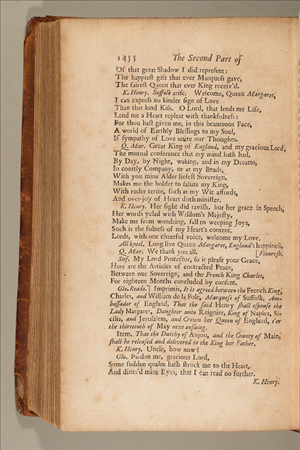 1455 The Second Part of
Of that great Shadow I did represent:
The happiest gift that ever Marquess gave,
The fairest Queen that ever King receiv'd.
K. Henry. Suffolk arise. Welcome, Queen Margaret,
I can express no kinder sign of Love
Than this kind Kiss. O Lord, that lends me Life,
Lend me a Heart repleat with thankfulness:
For thou hast given me, in this beauteous Face,
A world of Earthly Blessings to my Soul,
If Sympathy of Love unite our Thoughts.
Q. Mar. Great King of England, and my gracious Lord,
The mutual conference that my mind hath had,
By Day, by Night, waking, and in my Dreams,
In courtly Company, or at my Beads,
With you mine Alder liefest Soveraign,
Makes me the bolder to salute my King,
With ruder terms, such as my Wit affords,
And over-joy of Heart doth minister.
K. Henry. Her sight did ravish, but her grace in Speech,
Her words yclad with Wisdom's Majesty,
Make me from wondring, fall to weeping Joys,
Such is the fulness of my Heart's content.
Lords, with one cheerful voice, welcome my Love.
All kneel. Long live Queen Margaret, England's happiness.
Q. Mar. We thank you all. [Flourish.
Suf. My Lord Protector, so it please your Grace,
Here are the Articles of contracted Peace,
Between our Sovereign, and the French King Charles,
For eighteen Months concluded by consent.
Glo. Reads.] Imprimis, It is agreed between the French King,
Charles, and William de la Pole, Marquess of Suffolk, Am-
bassador of England, That the said Henry shall espouse the
Lady Margaret, Daughter unto Reignier, King of Naples, Si-
cilia, and Jerusalem, and Crown her Queen of England, e'er
the thirteenth of May next ensuing.
Item, That the Dutchy of Anjou, and the County of Main,
shall be released and delivered to the King her Father.
K. Henry. Uncle, how now?
Glo. Pardon me, gracious Lord,
Some sudden qualm hath struck me to the Heart,
And dimm'd mine Eyes, that I can read no further.
K. Henry.